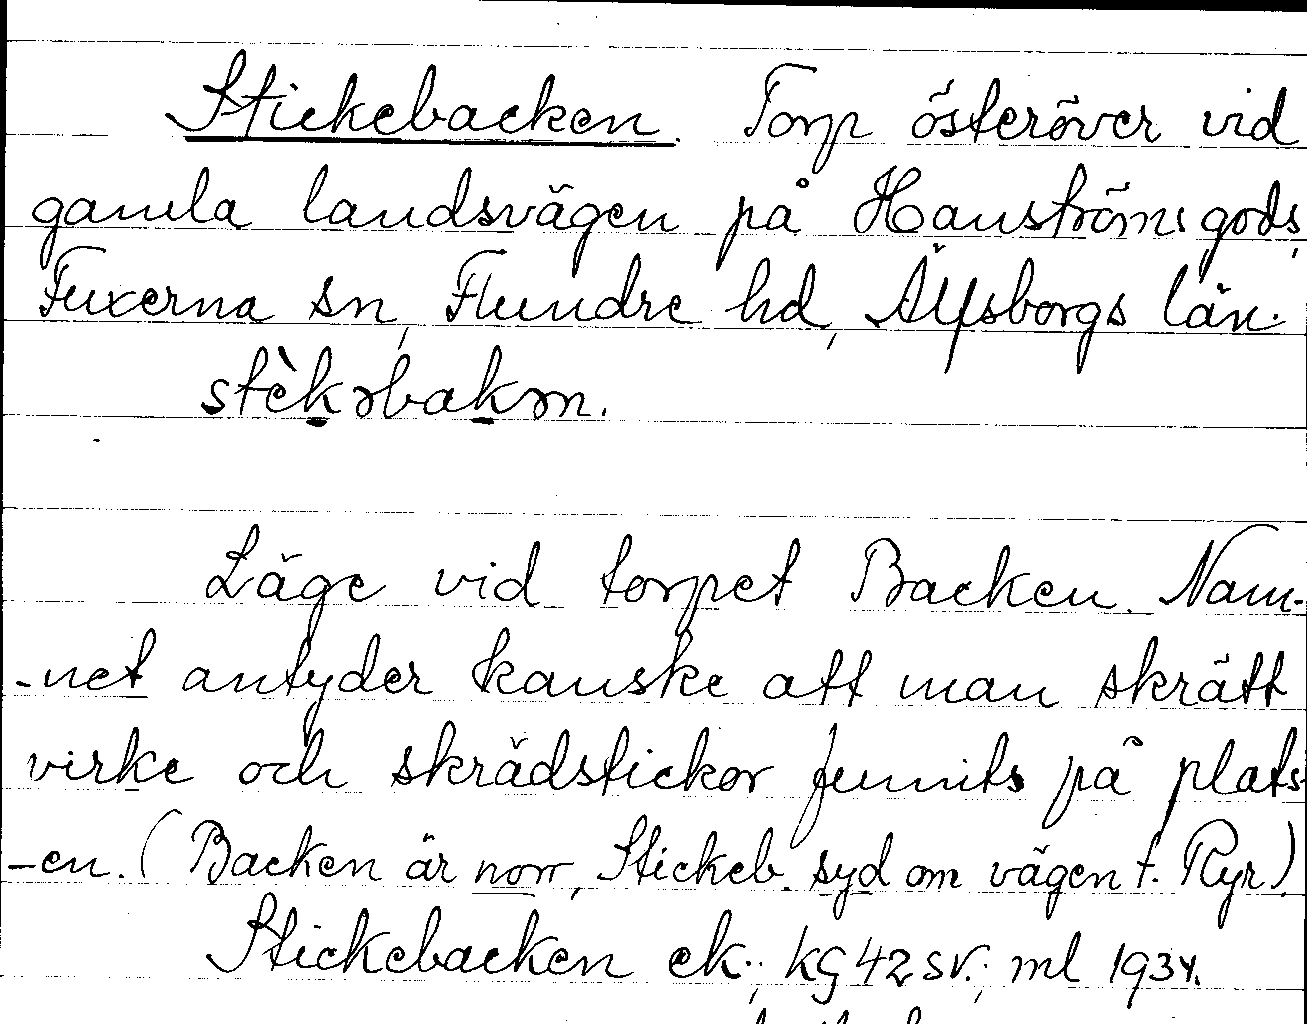 Stickebacken. Torp österöver vid
gamla landsvägen på Hanströms gods,
Fuxerna sn, Flundre hd, Älfsborgs län.
stèkəbakən.
Läge vid torpet Backen. Nam-
-net antyder kanske att man skrätt
virke och skrädstickor funnits på plats
-en. (Backen är norr, Stickeb. syd om vägen t. Ryr)
Stickebacken ek.; kg 42 SV.; ml 1934.